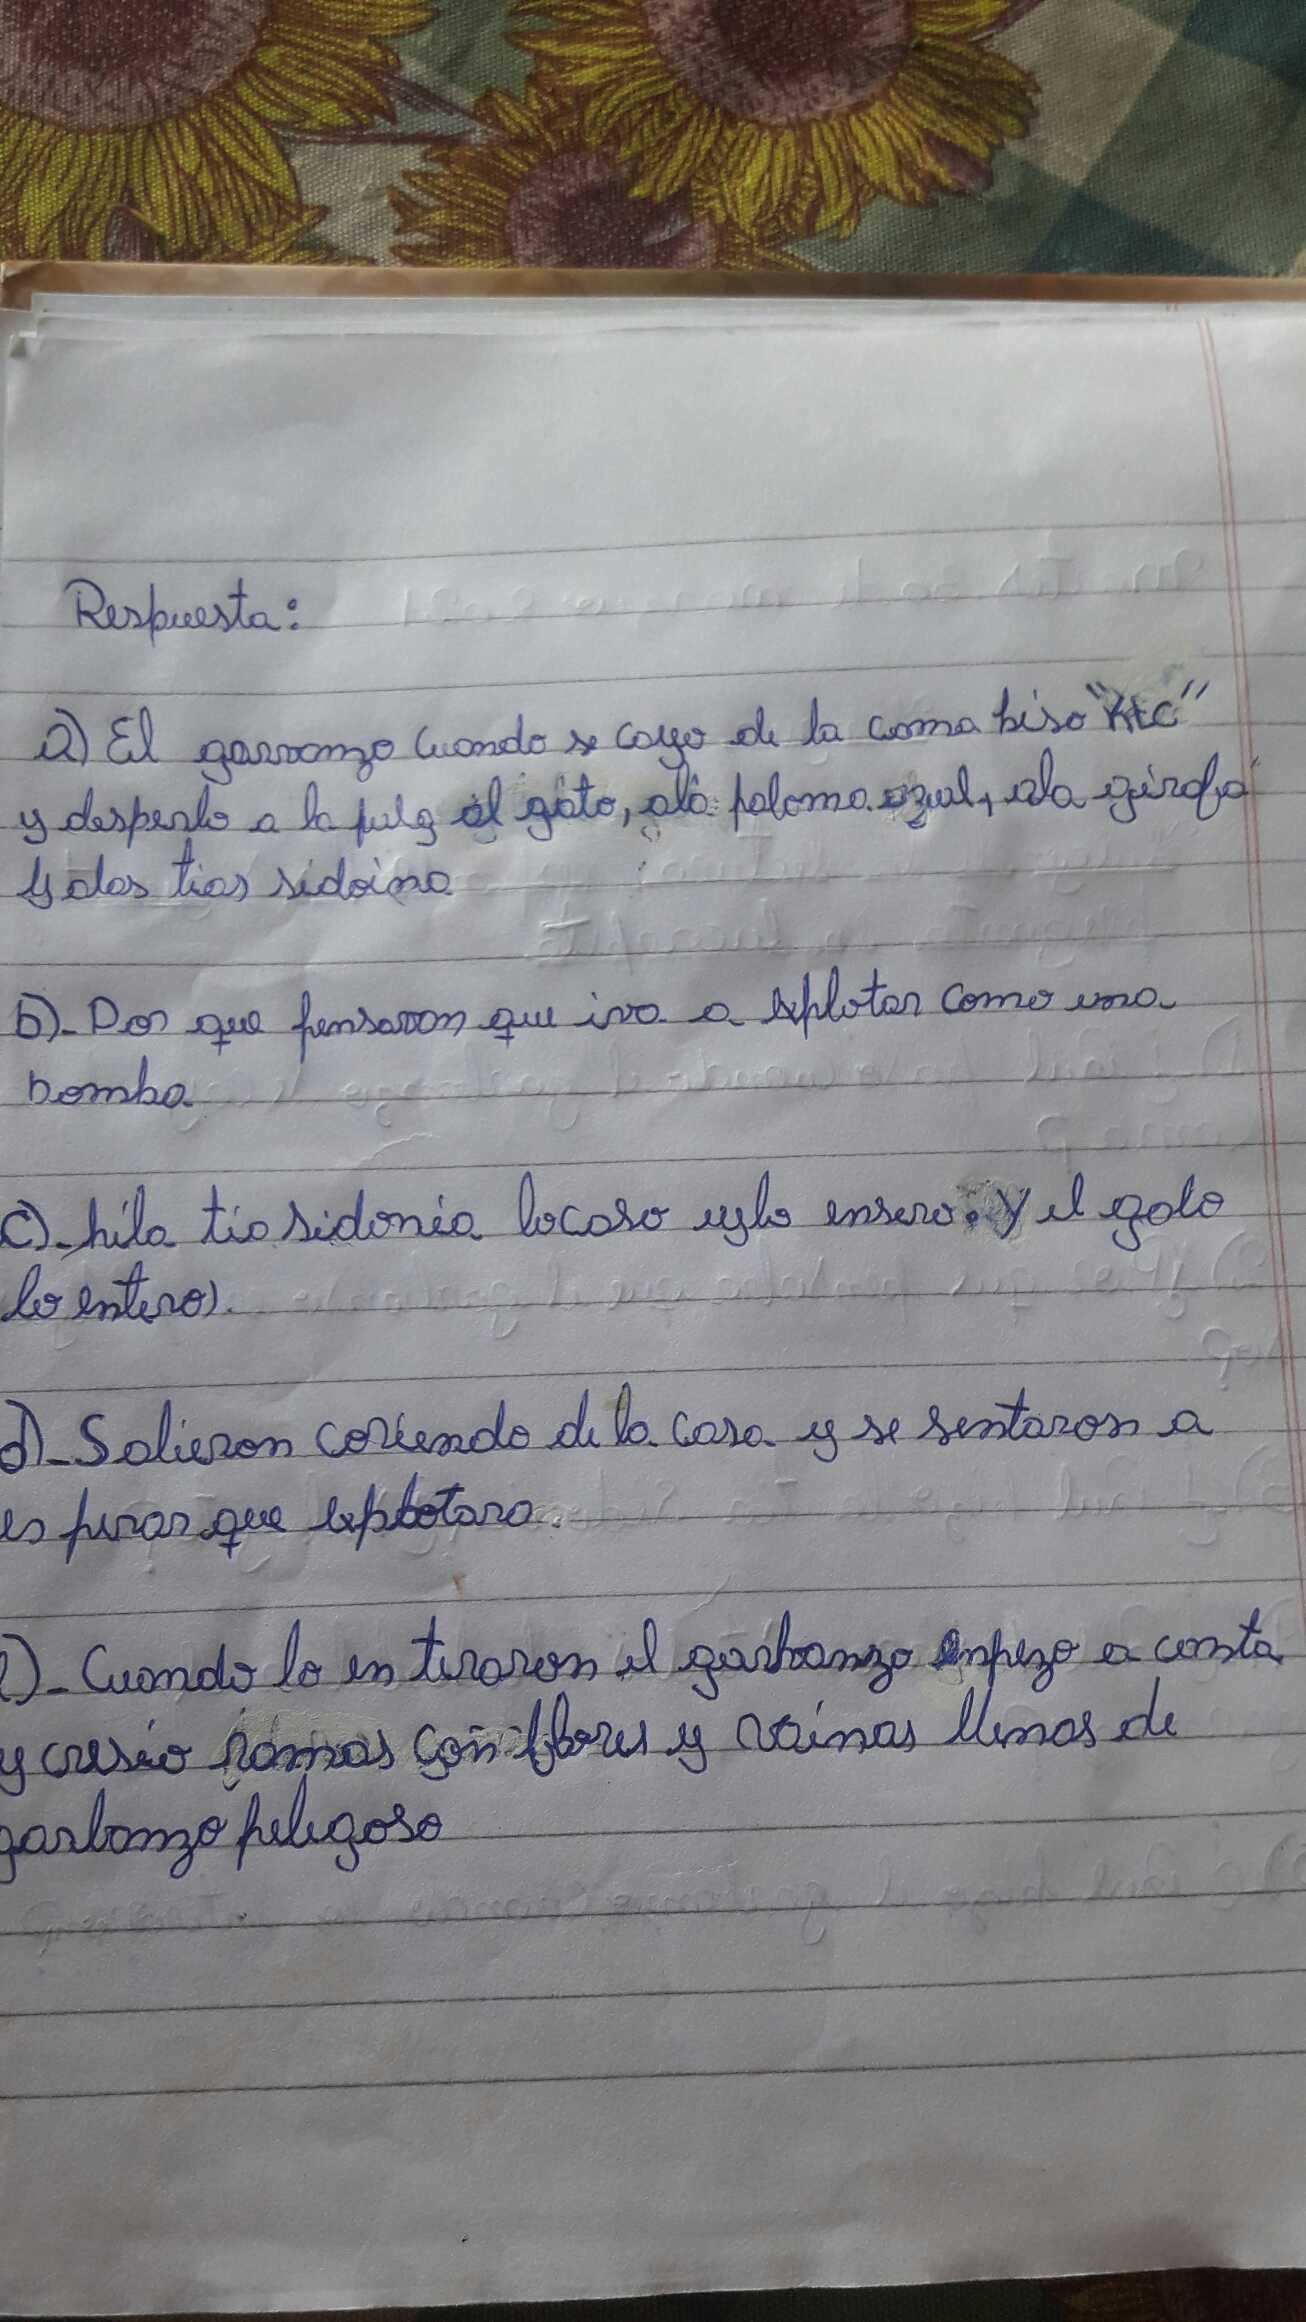 Respuesta:
a) El garvanzo Cuando se cayo de la cama hiso "ktc"
y desperto a la pulg al gato, ala paloma azul, ala girafa
y alas tias sidoina
b)- Por que pensaron que iva a explotar como una
bomba
c)- hila tia sidonia locaso y lo ensero. y el gato
lo entero).
d)- Salieron coriendo de la casa y se sentaron a
es perar que explotara.
e)- Cuando lo en teraron el garbanzo enpezo a canta
y cresio ramas con flores y vainas llenas de
garbanzo peligoso